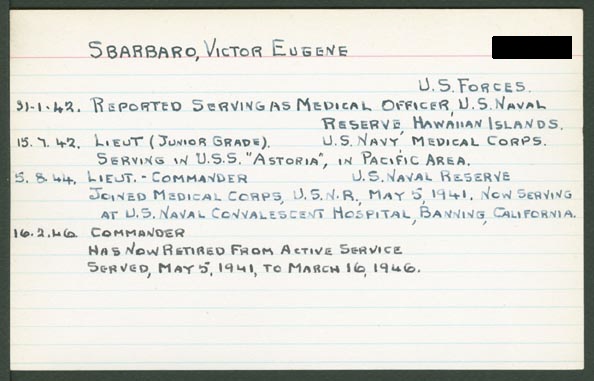 SBARBARO, VICTOR EUGENE
U.S. FORCES.
31-1-42. REPORTED SERVING AS MEDICAL OFFICER, U.S. NAVAL
RESERVE, HAWAIIAN ISLANDS.
15.7.42. LIEUT (JUNIOR GRADE). U.S. NAVY, MEDICAL CORPS.
SERVING IN U.S.S. "ASTORIA", IN PACIFIC AREA.
5.8.44. LIEUT.-COMMANDER U.S. NAVAL RESERVE
JOINED MEDICAL CORPS, U.S.N.R., MAY 5, 1941. NOW SERVING
AT U.S. NAVAL CONVALESCENT HOSPITAL, BANNING, CALIFORNIA.
16.2.46. COMMANDER
HAS NOW RETIRED FROM ACTIVE SERVICE
SERVED, MAY 5, 1941, TO MARCH 16, 1946.